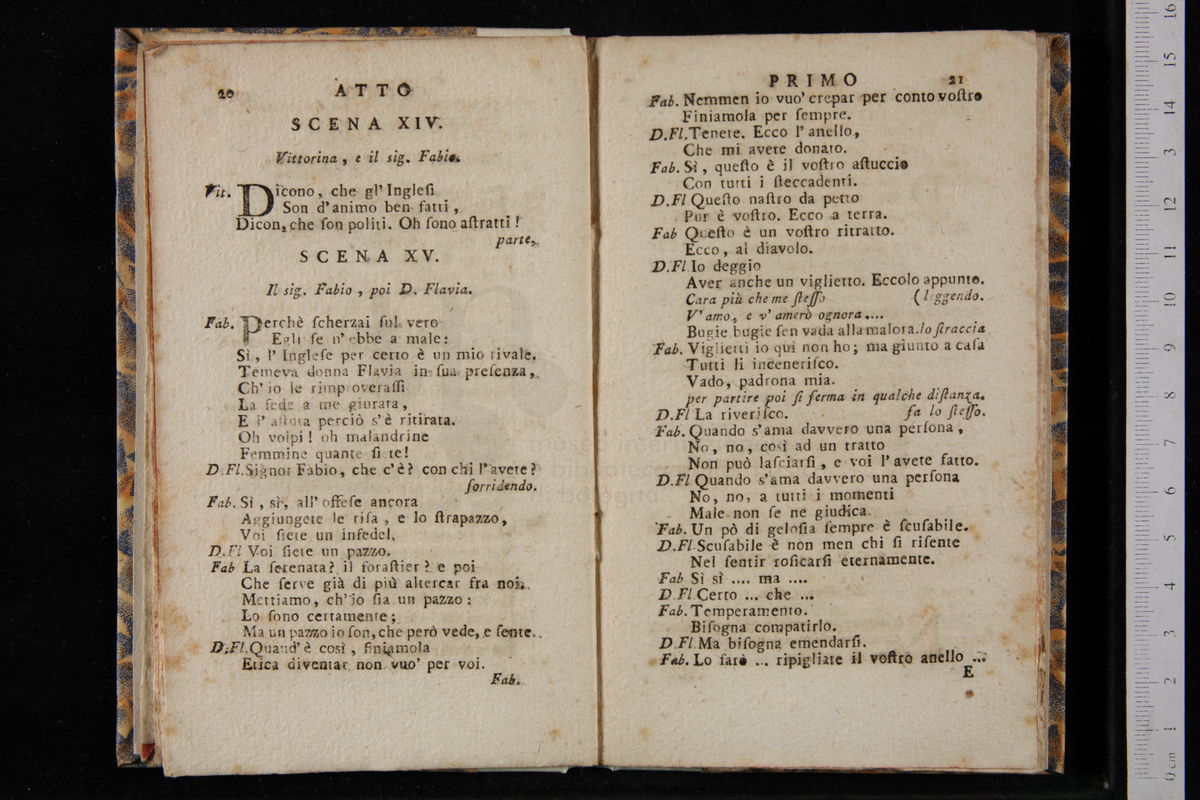 20
ATTO
SCENA XIV.
Vittorina, e il sig. Fabio.
Vit. Dicono, che gl'Inglesi
Son d'animo ben fatti,
Dicon, che son politi. Oh sono astratti!
parte.
SCENA XV.
Il sig. Fabio, poi D. Flavia.
Fab. Perchè scherzai sul vero
Egli se n'ebbe a male:
Sì, l'Inglese per certo è un mio rivale.
Temeva donna Flavia in sua presenza,
Ch'io le rimproverassi
La fede a me giurata,
E l'astuta perciò s'è ritirata.
Oh volpi! oh malandrine
Femmine quante siete!
D.Fl. Signor Fabio, che c'è? con chi l'avete?
sorridendo.
Fab. Sì, sì, all'offese ancora
Aggiungete le risa, e lo strapazzo,
Voi siete un infedel.
D.Fl Voi siete un pazzo.
Fab La serenata? il forastier? e poi
Che serve già di più altercar fra noi.
Mettiamo, ch'io sia un pazzo:
Lo sono certamente;
Ma un pazzo io son, che però vede, e sente.
D.Fl. Quand'è così, finiamola
Etica diventar non vuo' per voi.
Fab.
PRIMO
21
Fab. Nemmen io vuo' crepar per conto vostro
Finiamola per sempre.
D.Fl. Tenete. Ecco l'anello,
Che mi avete donato.
Fab. Sì, questo è il vostro astuccio
Con tutti i steccadenti.
D.Fl Questo nastro da petto
Pur è vostro. Ecco a terra.
Fab Questo è un vostro ritratto.
Ecco, al diavolo.
D.Fl Io deggio
Aver anche un viglietto. Eccolo appunto.
Cara più che me stesso (leggendo.
V'amo, e v'amerò ognora....
Bugie bugie sen vada alla malora. lo straccia
Fab. Viglietti io qui non ho; ma giunto a casa
Tutti li incenerisco.
Vado, padrona mia.
per partire poi si ferma in qualche distanza.
D.Fl La riverisco. fa lo stesso.
Fab. Quando s'ama davvero una persona,
No, no, così ad un tratto
Non può lasciarsi, e voi l'avete fatto.
D.Fl Quando s'ama davvero una persona
No, no, a tutti i momenti
Male non se ne giudica.
Fab. Un pò di gelosia sempre è scusabile.
D.Fl Scusabile è non men chi si risente
Nel sentir rosicarsi eternamente.
Fab Sì sì .... ma ....
D Fl Certo ... che ...
Fab. Temperamento.
Bisogna compatirlo.
D Fl. Ma bisogna emendarsi.
Fab. Lo farò ... ripigliate il vostro anello ...
E